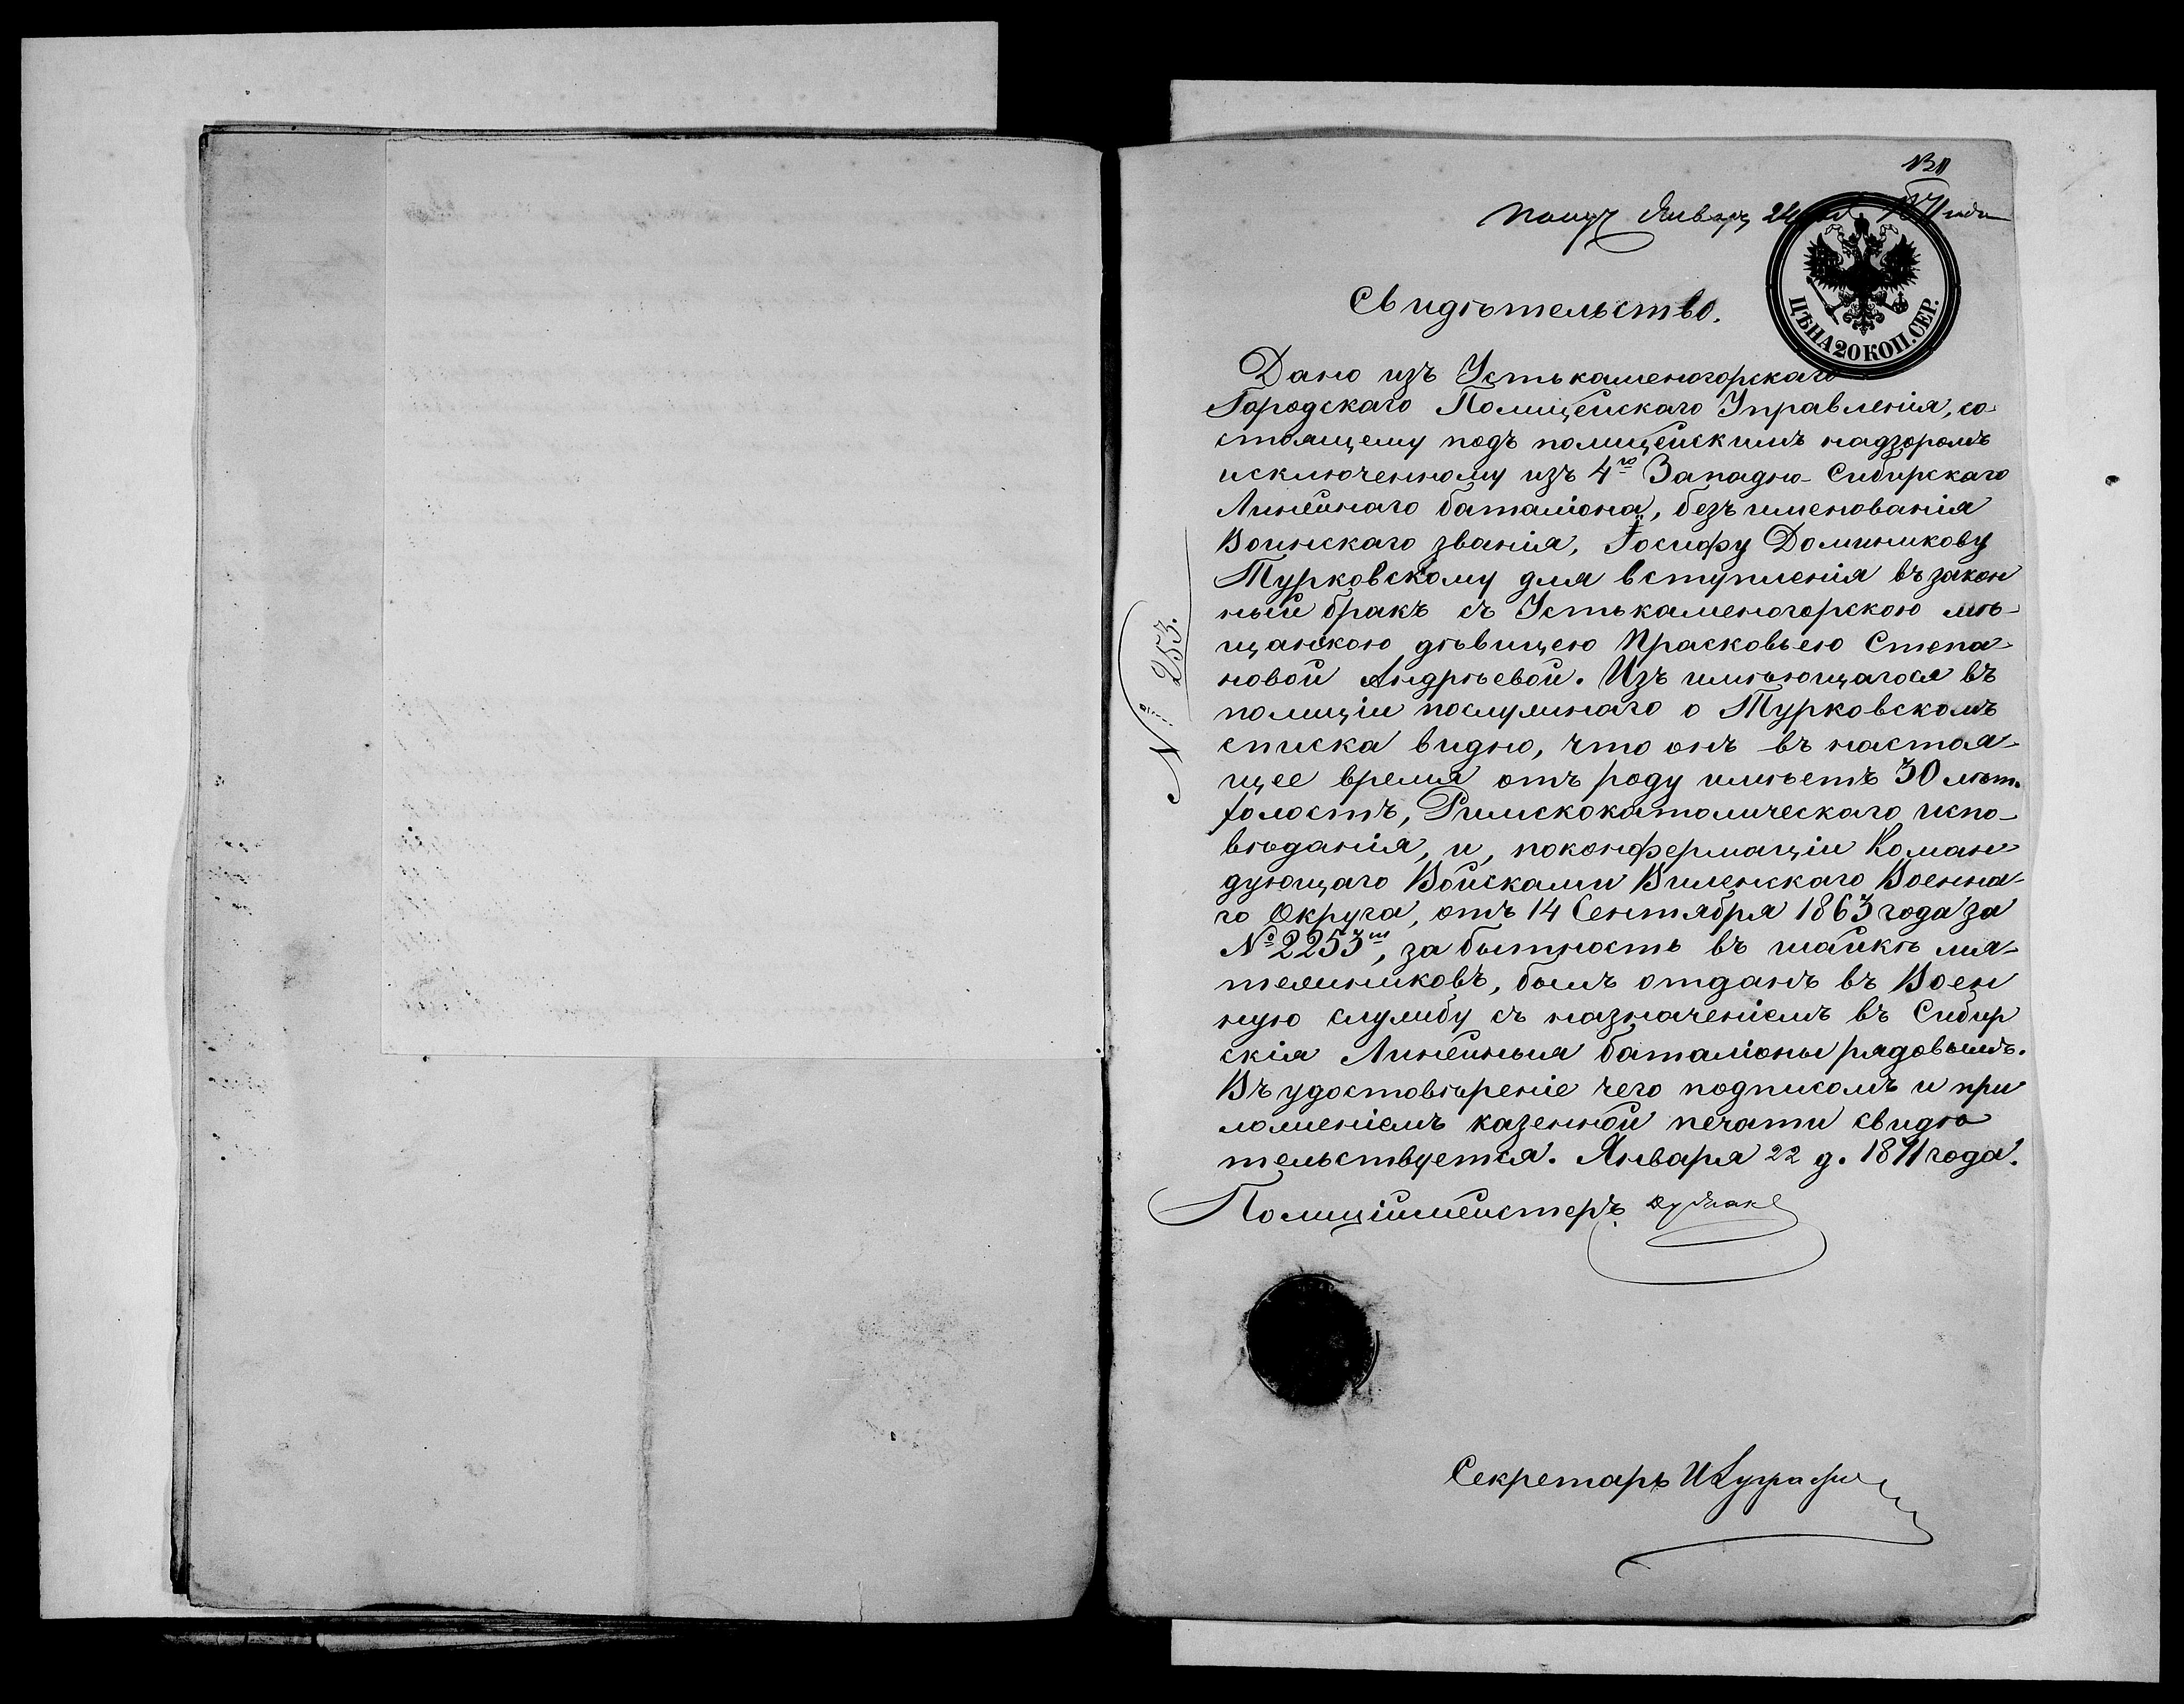 Января 24
ЦѢНА 20 КОП. СЕР.
Свидѣтельство.
Дано изъ Устькаменогорскаго
Городскаго Полицейскаго Управленія, со-
стоящему подъ полицейскимъ надзоромъ
исключенному изъ 4го Западно-Сибирскаго
Линейнаго баталіона, безъ именованія
Воинскаго званія, Іосифу Доминикову
Турковскому для вступленія въ закон
ный бракъ съ Устькаменогорскою мѣ-
щанскою дѣвицею Прасковьею Степа-
новой Андрѣевой. Изъ имѣющагося въ
полиціи послужнаго о Турковскомъ
списка видно, что онъ въ настоя-
щее время отъ роду имѣетъ 30 лѣт.
холостъ, Римскокатолическаго испо-
вѣданія, и, поконфермаціи Коман
дующаго Войсками Виленскаго Военна-
го Округа, отъ 14 Сентября 1863 года за
№ 2253м, за бытность въ шайкѣ мя-
тежниковъ, былъ отданъ въ Воен
ную службу съ назначеніемъ въ Сибир
скія Линейныя баталіоны рядовымъ.
Въ удостовѣреніе чего подписомъ и при
ложеніемъ казенной печати свидѣ
тельствуется. Января 22 д. 1871 года.
Полиціймейстеръ
Секретарь
№ 253.